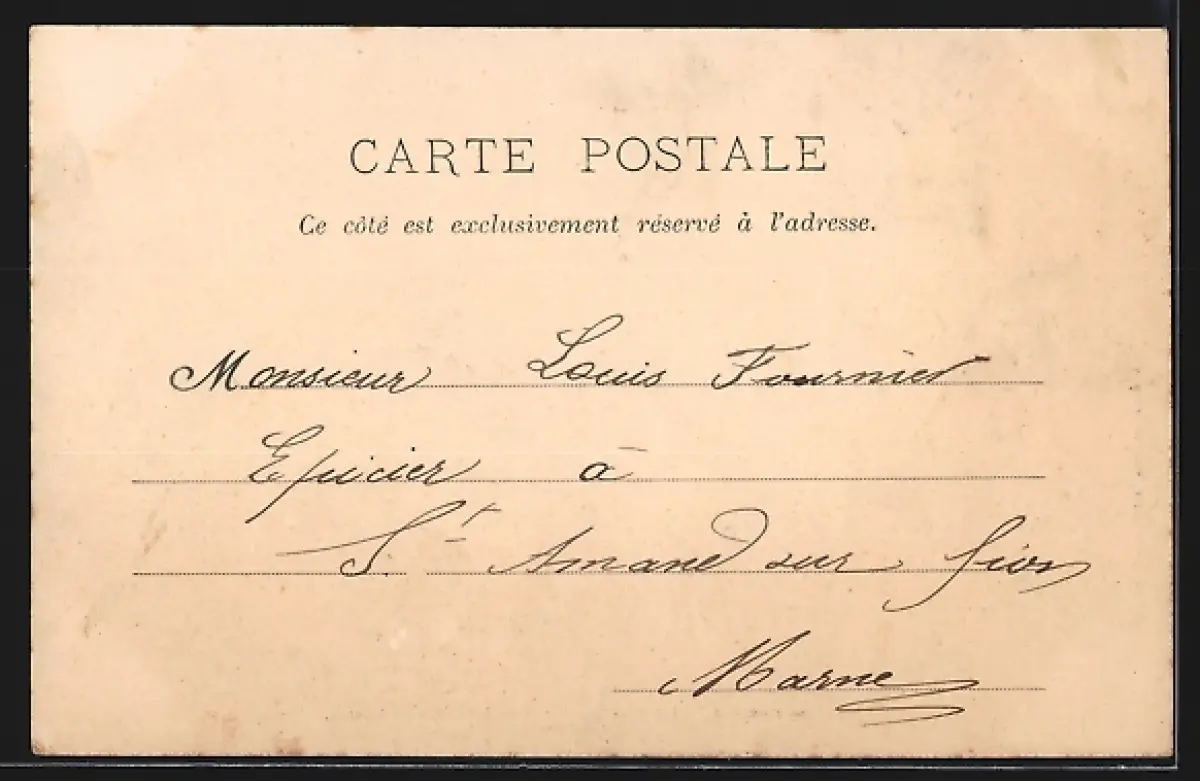 CARTE POSTALE
Ce côté est exclusivement réservé à l'adresse.
Monsieur Louis Fournier
Epicier à
St Amand sur fion
Marne